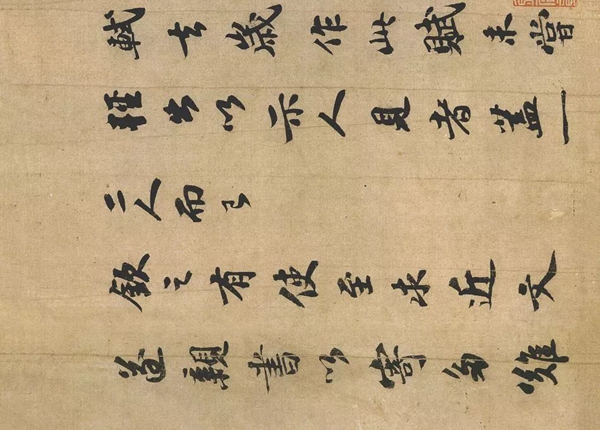 軾去歲作此賦未嘗
輕出以示人見者蓋一
二人而已
欽之有使至求近文
遂親書以寄多難